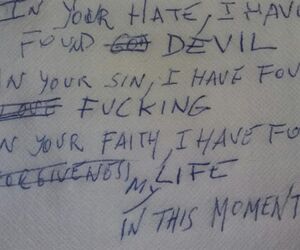 IN YOUR HATE, I HAVE
FOUND GOD DEVIL
IN YOUR SIN, I HAVE FOU
LOVE FUCKING
IN YOUR FAITH, I HAVE FO
FORGIVENESS MY LIFE
IN THIS MOMENT